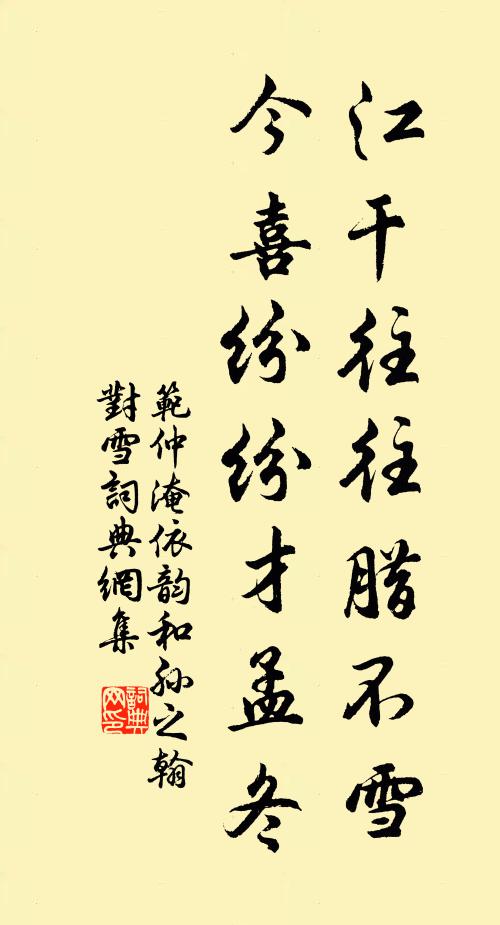 江干往往腊不雪
今喜纷纷才孟冬
範仲淹依韵和孙之翰
對雪詞典網集
詞典
网印